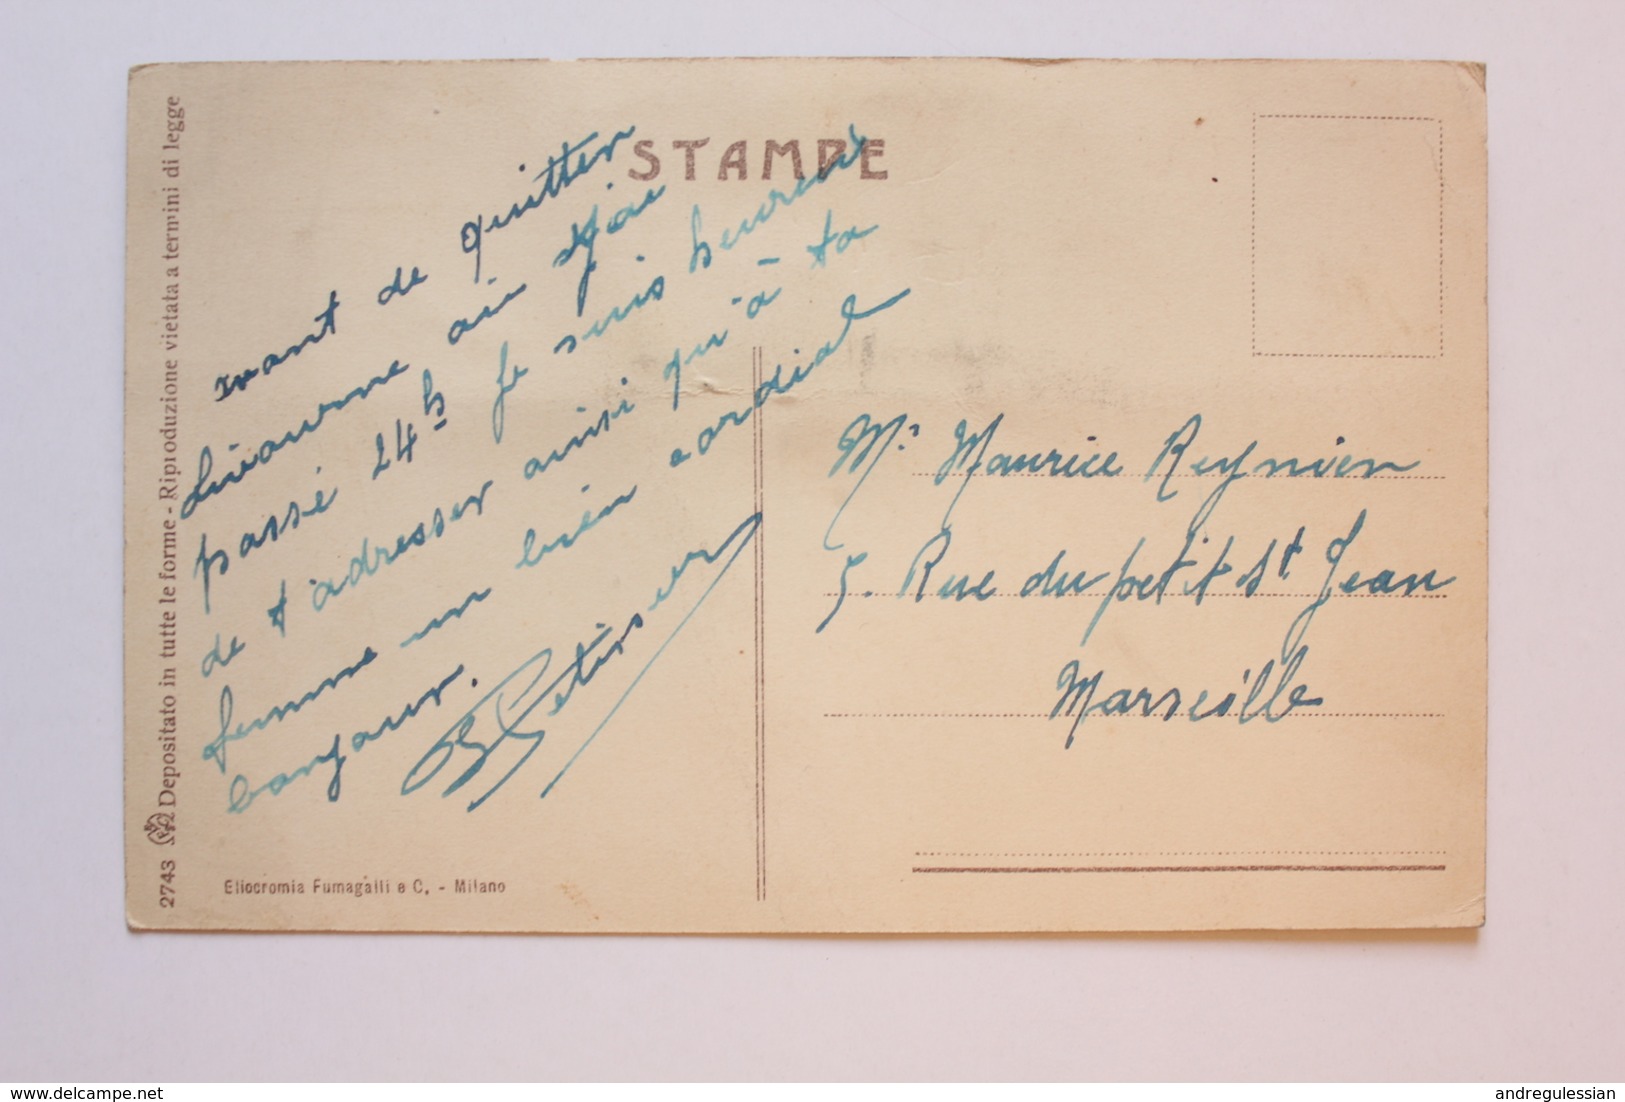 STAMPE
avant de quitter
Livourne où j'ai
passé 24h je suis heureux
de t'adresser ainsi qu'à ta
femme un bien cordial
bonjour.
Mr Maurice Reynier
5. Rue du petit St. Jean
Marseille
2743 Depositato in tutte le forme - Riproduzione vietata a termini di legge
Eliocromia Fumagalli e C. - Milano
delcampe.net
andregulessian